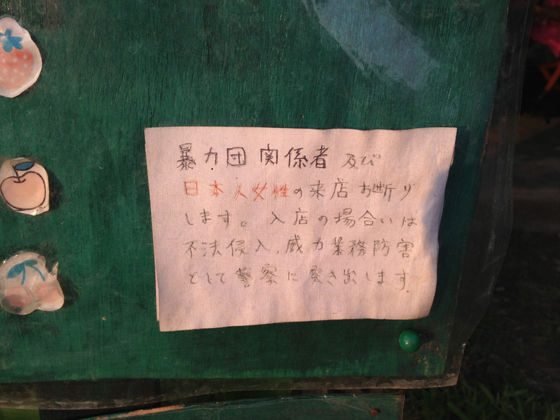 暴力団関係者 及び
日本人女性の来店お断り
します。入店の場合いは
不法侵入、威力業務防害
として警察に突き出します.